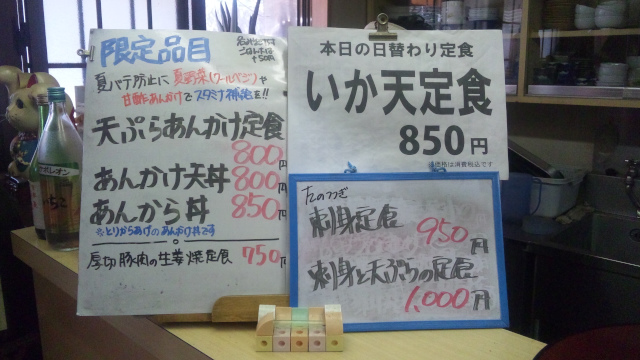 限定品目
夏バテ防止に夏野菜(クールベジ)や
甘酢あんかけでスタミナ補給を!!
天ぷらあんかけ定食
800円
あんかけ天丼 800円
あんから丼 850円
※とりからあげのあんかけ丼です
厚切豚肉の生姜焼定食 750円
本日の日替わり定食
いか天定食
850円
価格は消費税込です
刺身定食 950円
刺身と天ぷらの定食
1,000円